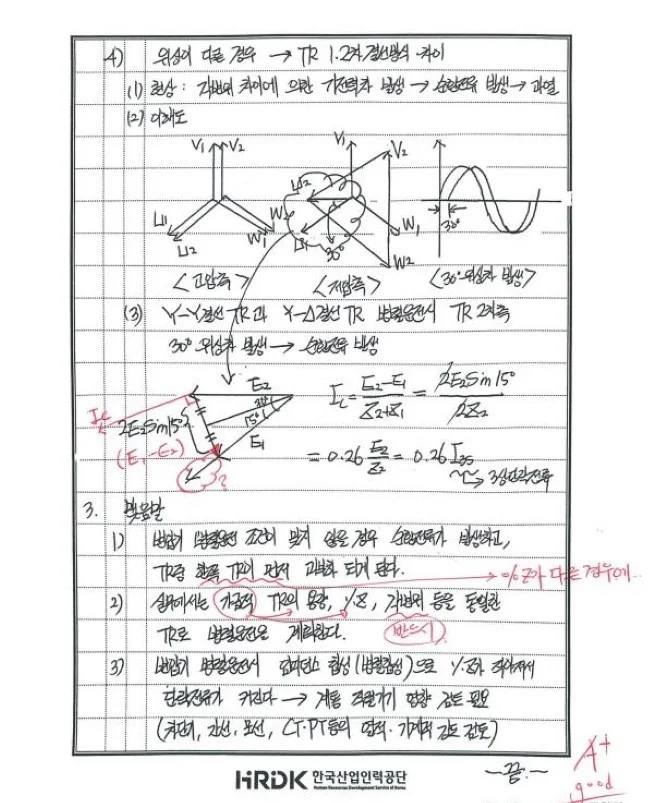 4) 위상이 다른 경우 → TR 1.2차 결선방식 차이
(1) 현상 : 각변위 차이에 의한 기전력차 발생 → 순환전류 발생 → 과열
(2) 이해도
V₁ V₂ V₁ V₂
U₂
U₁ W₂ U₁ W₁ 30°
U₂ W₁ 30° W₂
<고압측> <저압측> <30° 위상차 발생>
(3) Y-Y결선 TR과 Y-Δ결선 TR 병렬운전시 TR 2차측
30° 위상차 발생 → 순환전류 발생
E₂
Ic 2E₂Sin15° 15° E₁
(E₁-E₂)
?
I꜀ = E₂-E₁ / Z₂+Z₁ = 2E₂Sin15° / 2Z₂
= 0.26 E₂/Z₂ = 0.26 I3s
→ 3상단락전류
3. 맺음말
1) 변압기 병렬운전 조건이 맞지 않을 경우 순환전류가 발생하고,
TR중 한쪽 TR이 먼저 과부하 되게 된다. → %Z가 다른 경우에..
2) 실무에서는 가급적 TR의 용량, %Z, 각변위 등을 동일한
TR로 병렬운전을 계획한다. 반드시
3) 변압기 병렬운전시 임피던스 합성(병렬합성)으로 %Z가 작아져서
단락전류가 커진다 → 계통 직렬기기 영향 검토 필요
(차단기, 간선, 모선, CT·PT등의 열적·기계적 강도 검토)
~끝.~
A+
good
HRDK 한국산업인력공단
Human Resources Development Service of Korea